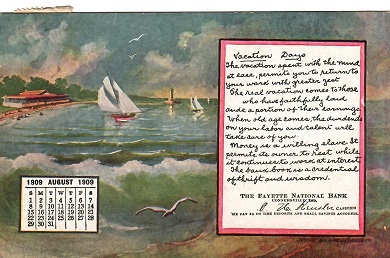 Vacation Days
The vacation spent with the mind
at ease, permits you to return to
your work with greater zest
The real vacation comes to those
who have faithfully laid
aside a portion of their earnings.
When old age comes, the dividends
on your labor and talent will
take care of you
Money is a willing slave. It
permits its owner to rest while
it continues to work at interest.
The bank book is a credential
of thrift and wisdom.
THE FAYETTE NATIONAL BANK
CONNERSVILLE, IND.
CASHIER
WE PAY 3% ON TIME DEPOSITS AND SMALL SAVINGS ACCOUNTS.
1909 AUGUST 1909
S M T W T F S
1 2 3 4 5 6 7
8 9 10 11 12 13 14
15 16 17 18 19 20 21
22 23 24 25 26 27 28
29 30 31